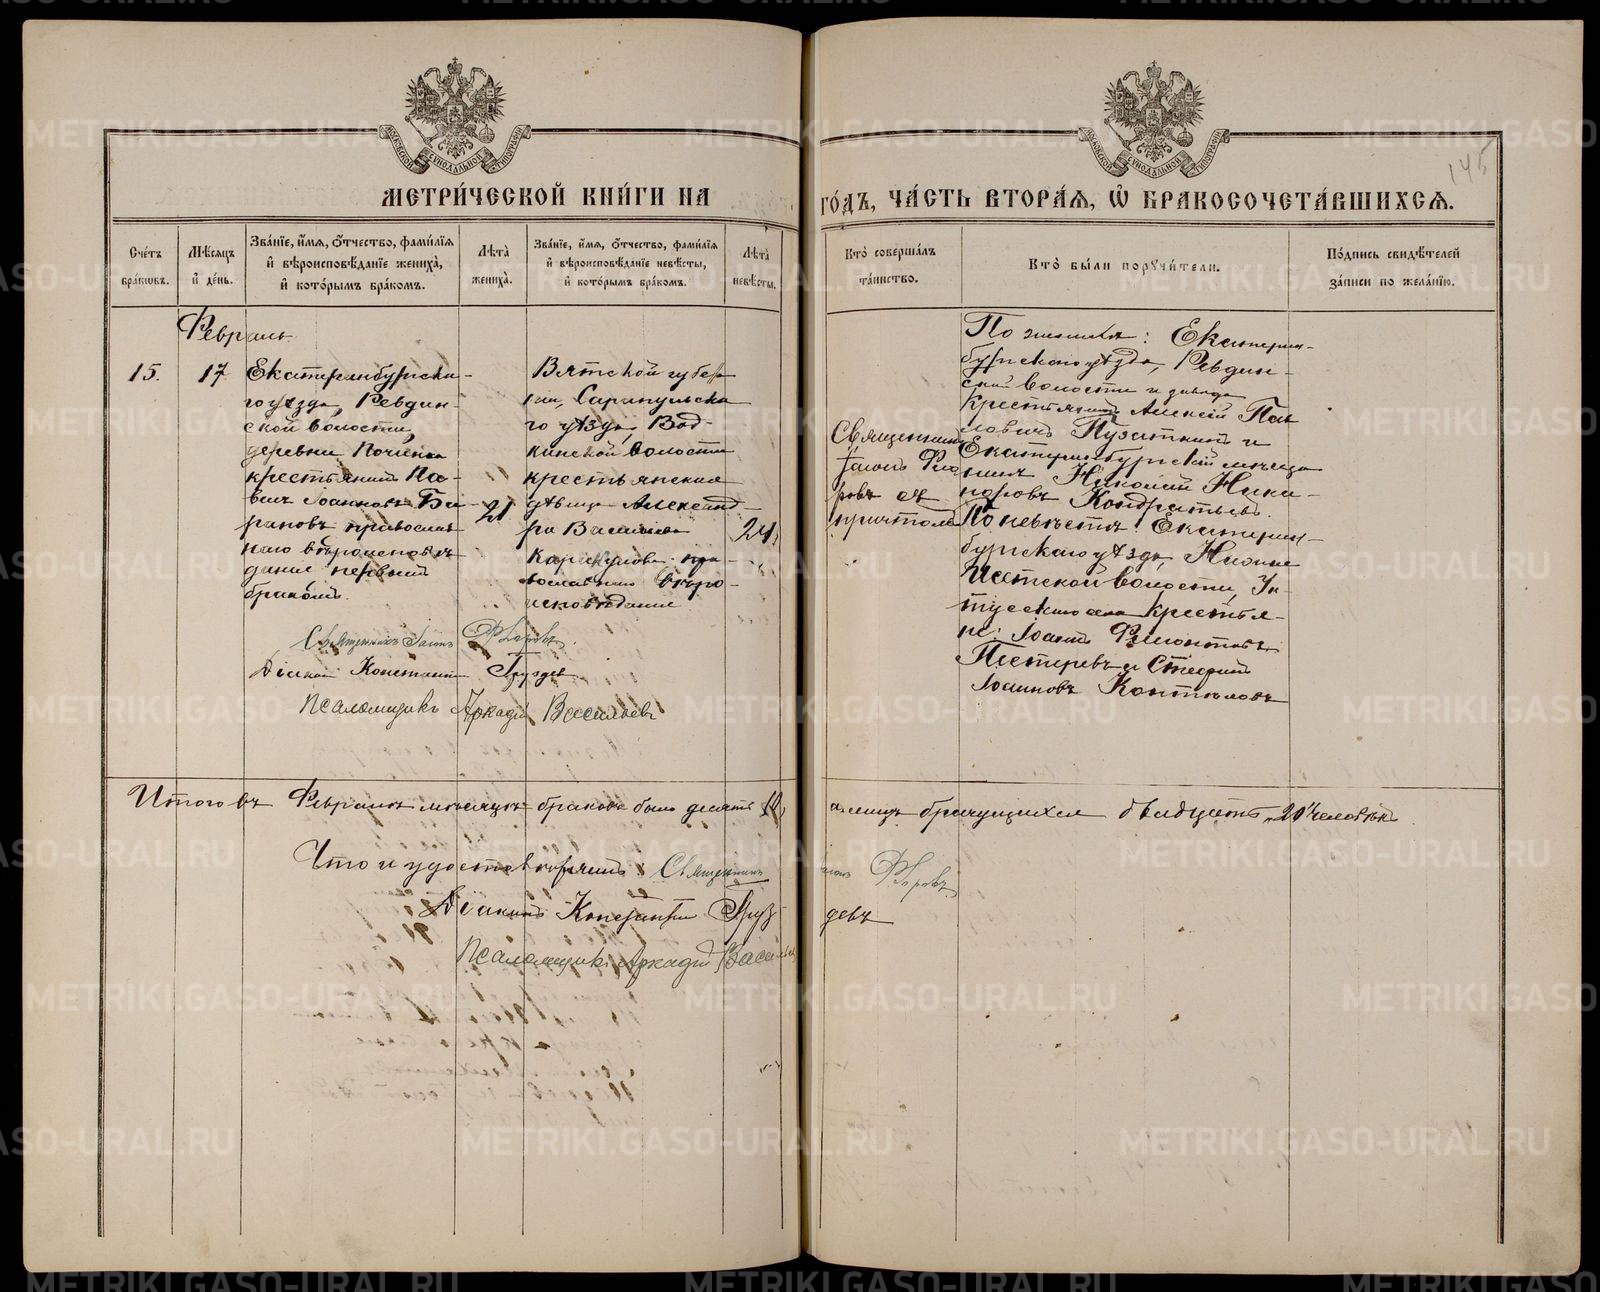 МЕТРИ́ЧЕСКОЙ КНИ́ГИ НА ГО́ДЪ, ЧА́СТЬ ВТОРА́Я, Ѡ БРАКОСОЧЕТА́ВШИХСЯ.
145
Сче́тъ бра́кѡвъ.
Мѣ́сяцъ и́ де́нь.
Зва́нїе, и́мя, ѻ́тчество, фами́лїя и́ вѣроисповѣ́данїе жениха̀, и́ кото́рымъ бра́комъ.
Лѣ́та жениха̀.
Зва́нїе, и́мя, ѻ́тчество, фами́лїя и́ вѣроисповѣ́данїе невѣ́сты, и́ кото́рымъ бра́комъ.
Лѣ́та невѣ́сты.
Кто̀ соверша́лъ та́инство.
Кто̀ бы́ли порꙋчи́тели.
По́дпись свидѣ́телей за́писи по жела́нїю.
Февраль
15.
17
Екатеринбургска-
го уѣзда, Ревдин-
ской волости,
деревни Починка
крестьянинъ Па-
велъ Іоанновъ Ба-
рановъ православ
наго вѣроисповѣ-
данія первымъ
бракомъ.
21
Вятской губер
ніи, Сарапульска
го уѣзда, Вот-
кинской волости
крестьянская
дѣвица Александ-
ра Васильева
пра-
вославнаго вѣро-
исповѣданія
24
Священникъ
Іоаннъ Фло
ровъ съ
причтомъ
По женихѣ: Екатерин-
бургскаго уѣзда, Ревдин-
ской волости и завода
крестьянинъ Алексѣй Пав
ловичъ и
Екатеринбургскій мѣща
нинъ Николай Ники-
норовъ Кондратьевъ.
По невѣстѣ: Екатерин-
бургскаго уѣзда, Нижне
Исетской волости,
села крестья-
не: Іоаннъ
Пестеревъ и Стефанъ
Іоанновъ
Священникъ Іоаннъ Флоровъ
Діаконъ Константинъ Груздевъ
Псаломщикъ Аркадій Васильевъ
Итого въ Февралѣ мѣсяцѣ браковъ было десять 10, а лицъ брачущихся двадцать 20 человѣкъ
Что и удостовѣряютъ: Священникъ Іоаннъ Флоровъ
Діаконъ Константинъ Груздевъ
Псаломщикъ Аркадій Васильевъ
METRIKI.GASO-URAL.RU